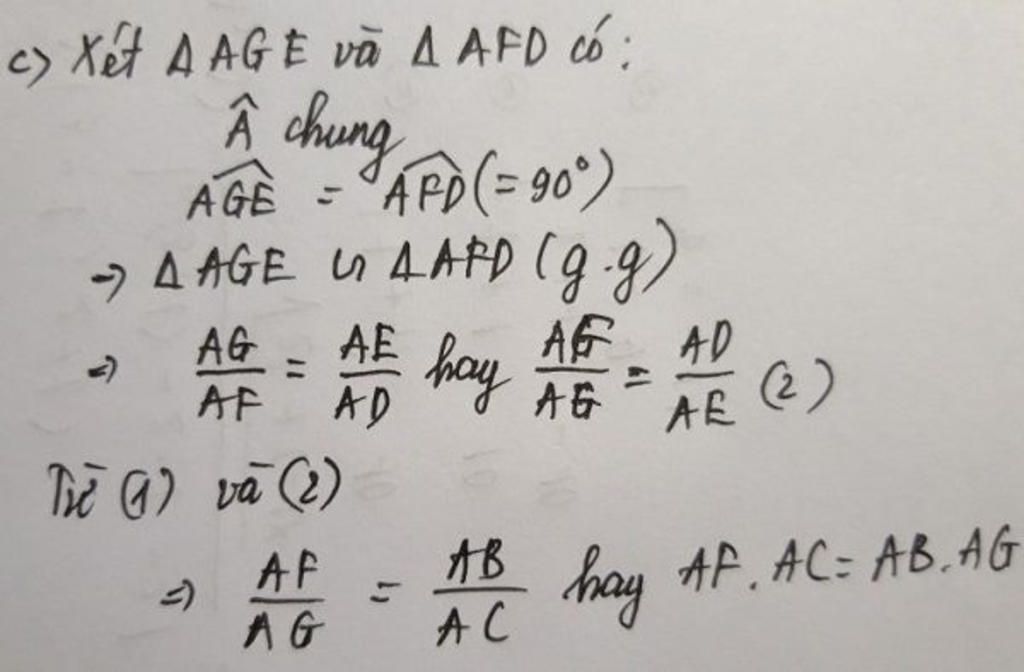 c) Xét Δ AGE và Δ AFD có:
Â chung
\widehat{AGE} = \widehat{AFD} (= 90°)
→ Δ AGE ∽ Δ AFD (g.g)
⇒ \frac{AG}{AF} = \frac{AE}{AD} hay \frac{AF}{AG} = \frac{AD}{AE} (2)
Từ (1) và (2)
⇒ \frac{AF}{AG} = \frac{AB}{AC} hay AF. AC = AB. AG